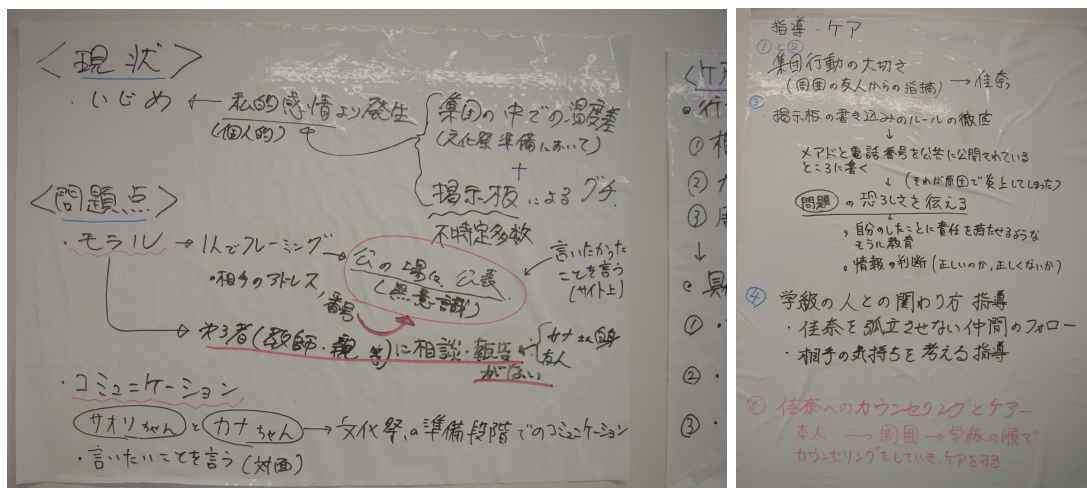 <現状>
・いじめ ← 私的感情より発生
(個人的)
集団の中での温度差
(文化祭準備において)
+
掲示板によるグチ
不特定多数
<問題点>
・モラル → 1人でフレーミング →
・相手のアドレス、番号
公の場に公表
(無意識)
言いたかった
ことを言う
(サイト上)
→ 第3者(教師・親等)に相談・報告
がない
カナさん自身
友人
・コミュニケーション
サオリちゃん と カナちゃん → 文化祭の準備段階でのコミュニケーション
・言いたいことを言う(対面)
<ケア
・行
① 相
②
③ 周
↓
・具
① ・
② ・
③ ・
指導・ケア
①と②
集団行動の大切さ
(周囲の友人からの指摘) → 佳奈
③
掲示板の書き込みのルールの徹底
↓
メアドと電話番号を公共に公開されている
ところに書く
↓ (それが原因で炎上してしまった)
問題の恐ろしさを伝える
↓
、自分のしたことに責任を持たせるような
モラル教育
・情報の判断(正しいのか,正しくないか)
④ 学級の人との関わり方 指導
・佳奈を孤立させない仲間のフォロー
・相手の気持ちを考える指導
⑤ 佳奈へのカウンセリングとケアー
本人 → 周囲 → 学級の順で
カウンセリングをしていき、ケアをする